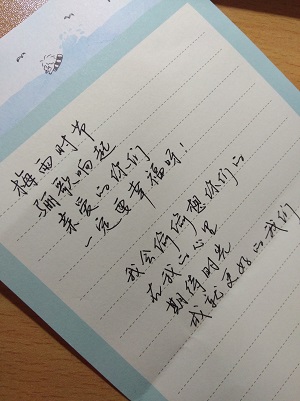 梅雨时节
骊歌响起
亲爱的你们
一定要幸福呀！
我会偷偷想你们的
在我心里
期待时光
成就更好的我们